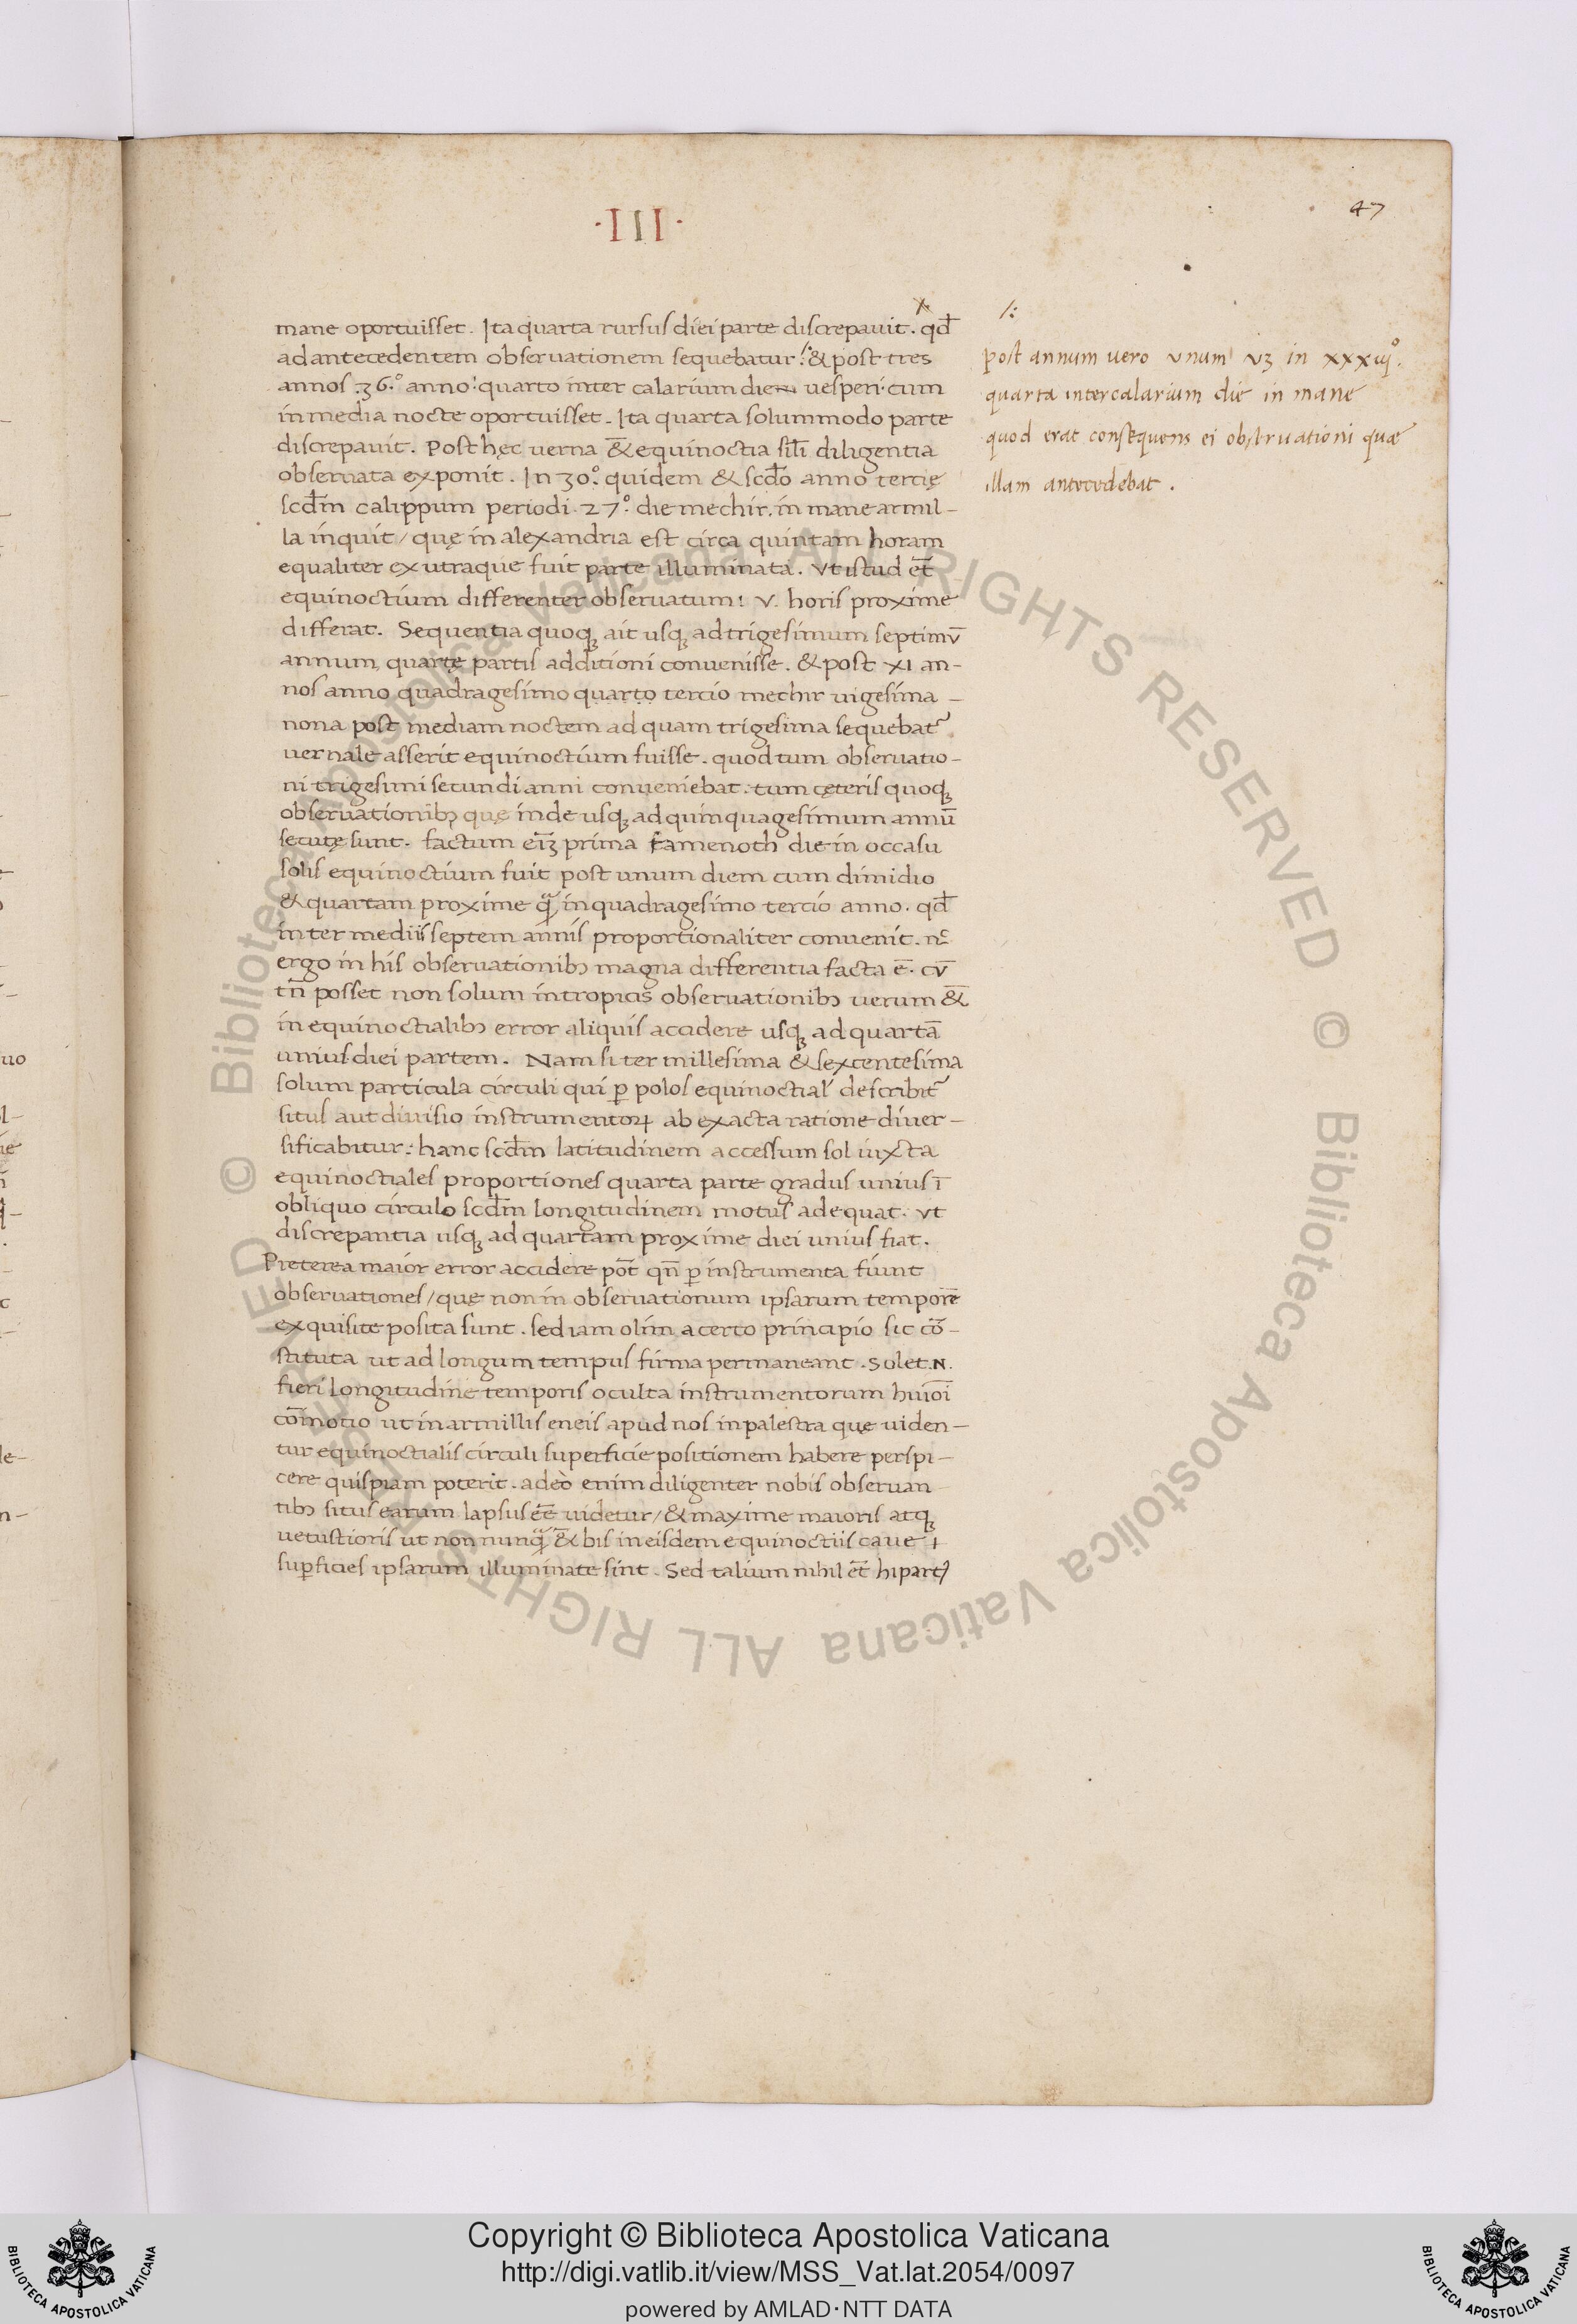 ·III·
47
mane oportuisset. Ita quarta rursus diei parte discrepauit. qd̄
ad antecedentem obseruationem sequebatur /: & post tres
annos .36.º anno: quarto inter calarium die uesperi. cum
in media nocte oportuisset. Ita quarta solummodo parte
discrepauit. Post hęc uerna &̄ equinoctia sil̄i diligentia
obseruata exponit. In 30.º quidem & scd̄o anno tercię
scd̄m calippum periodi .27.º die mechir. in mane armil-
la inquit / quę in alexandria est circa quintam horam
equaliter ex utraque fuit parte illuminata. Vt istud et̄
equinoctium differenter obseruatum: V. horis proxime
differat. Sequentia quoqꝫ ait usqꝫ ad trigesimum septimū
annum, quartę partis additioni conuenisse. & post XI an-
nos anno quadragesimo quarto tercio mechir uigesima -
nona post mediam noctem ad quam trigesima sequebat᷑
uernale asserit equinoctium fuisse. quod tum obseruatio-
ni trigesimi secundi anni conueniebat. tum cęteris quoqꝫ
obseruationibꝫ quę inde usqꝫ ad quinquagesimum annū
secutę sunt. factum eīꝫ prima famenoth die in occasu
solis equinoctium fuit post unum diem cum dimidio
& quartam proxime q̄ꝫ in quadragesimo tercio anno. qd̄
inter mediis septem annis proportionaliter conuenit. nc̄
ergo in his obseruationibꝫ magna differentia facta ē. cū
tn̄ posset non solum in tropicis obseruationibꝫ uerum &̄
in equinoctialibꝫ error aliquis accidere usqꝫ ad quartā
unius diei partem. Nam si ter millesima & sexcentesima
solum particula circuli qui ꝑ polos equinoctial' describit᷑
situs aut diuisio instrumentoꝝ ab exacta ratione diuer-
sificabitur: hanc scd̄m latitudinem accessum sol iuxta
equinoctiales proportiones quarta parte gradus unius ī
obliquo circulo scd̄m longitudinem motus adequat. Vt
discrepantia usqꝫ ad quartam proxime diei unius fiat.
Preterea maior error accidere pōt qn̄ ꝑ instrumenta fiunt
obseruationes / quę non in obseruationum ipsarum tempore
exquisite posita sunt. sed iam olim a certo principio sic cō-
stituta ut ad longum tempus firma permaneant. Solet .N.
fieri longitudine temporis oculta instrumentorum huiōi
cōmotio ut in armillis eneis apud nos in palestra quę uiden-
tur equinoctialis circuli superficie positionem habere perspi-
cere quispiam poterit. adeò enim diligenter nobis obseruan
tibꝫ situs earum lapsus eē uidetur / & maxime maioris atqꝫ
uetustioris ut non nunq̄ꝫ &̄ bis in eisdem equinoctiis caue
suꝑficies ipsarum illuminate sint. Sed talium nihil et̄ hiparcꝫ
/:
post annum uero vnum vꝫ in xxxiijº.
quarta intercalarium die in mane
quod erat consequens ei obseruationi quæ
illam antecedebat.
Copyright © Biblioteca Apostolica Vaticana
http://digi.vatlib.it/view/MSS_Vat.lat.2054/0097
powered by AMLAD·NTT DATA
© Biblioteca Apostolica Vaticana ALL RIGHTS RESERVED
© Biblioteca Apostolica Vaticana ALL RIGHTS RESERVED
BIBLIOTECA APOSTOLICA VATICANA
BIBLIOTECA APOSTOLICA VATICANA